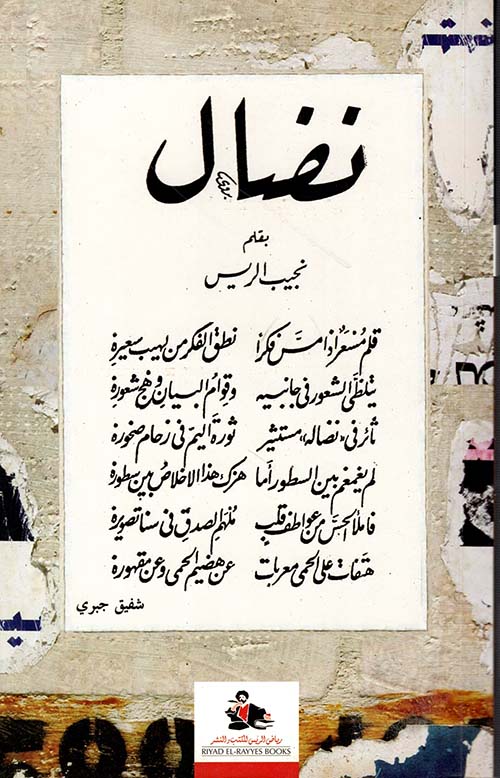 نضال
بدوي
بقلم
نجيب الريس
قلم مُسَعَّرٌ اذا مسَّ فكرًا نطق الفكر من لهيب سعيره
يتلظّى الشعور في جانبيه وقوام البيان وهج شعوره
ثائر في «نضاله» مستثير ثورة اليمّ في زحام صخوره
لم يغمغم بين السطور أما هزّك هذا الاخلاصُ بين سطوره
فاملأ الحسَّ من عواطف قلبٍ ملهَمِ الصدقِ في سنا تصويره
هتفات على الحمى معربات عن هضيم الحمى وعن مقهوره
شفيق جبري
رياض الريس للكتب والنشر
RIYAD EL-RAYYES BOOKS